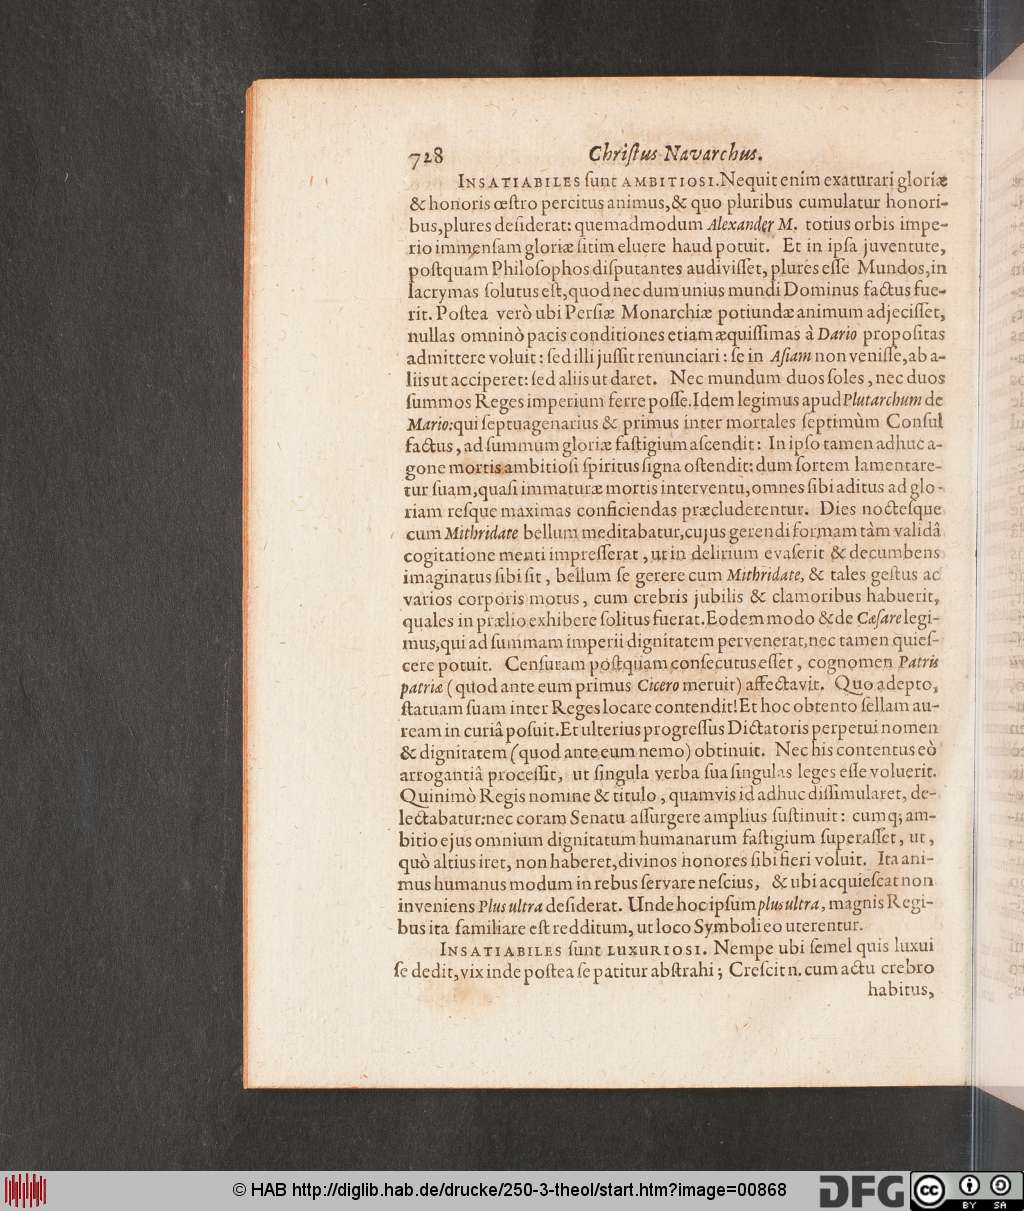 728
Chriſtus Navarchus.
INSATIABILES ſunt AMBITIOSI. Nequit enim exaturari gloriæ
& honoris œſtro percitus animus, & quo pluribus cumulatur honori-
bus, plures deſiderat: quemadmodum Alexander M. totius orbis impe-
rio immenſam gloriæ ſitim eluere haud potuit. Et in ipſa juventute,
poſtquam Philoſophos diſputantes audiviſſet, plures eſſe Mundos, in
lacrymas ſolutus eſt, quod nec dum unius mundi Dominus factus fue-
rit. Poſtea verò ubi Perſiæ Monarchiæ potiundæ animum adjeciſſet,
nullas omninò pacis conditiones etiam æquiſſimas à Dario propoſitas
admittere voluit: ſed illi juſſit renunciari: ſe in Aſiam non veniſſe, ab a-
liis ut acciperet: ſed aliis ut daret. Nec mundum duos ſoles, nec duos
ſummos Reges imperium ferre poſſe. Idem legimus apud Plutarchum de
Mario: qui ſeptuagenarius & primus inter mortales ſeptimùm Conſul
factus, ad ſummum gloriæ faſtigium aſcendit: In ipſo tamen adhuc a-
gone mortis ambitioſi ſpiritus ſigna oſtendit: dum ſortem lamentare-
tur ſuam, quaſi immaturæ mortis interventu, omnes ſibi aditus ad glo-
riam reſque maximas conficiendas præcluderentur. Dies nocteſque
cum Mithridate bellum meditabatur, cujus gerendi formam tàm validâ
cogitatione menti impreſſerat, ut in delirium evaſerit & decumbens
imaginatus ſibi ſit, bellum ſe gerere cum Mithridate, & tales geſtus ac
varios corporis motus, cum crebris jubilis & clamoribus habuerit,
quales in prælio exhibere ſolitus fuerat. Eodem modo & de Cæſare legi-
mus, qui ad ſummam imperii dignitatem pervenerat, nec tamen quieſ-
cere potuit. Cenſuram poſtquam conſecutus eſſet, cognomen Patris
patriæ (quod ante eum primus Cicero meruit) affectavit. Quo adepto,
ſtatuam ſuam inter Reges locare contendit! Et hoc obtento ſellam au-
ream in curiâ poſuit. Et ulterius progreſſus Dictatoris perpetui nomen
& dignitatem (quod ante eum nemo) obtinuit. Nec his contentus eò
arrogantiâ proceſſit, ut ſingula verba ſua ſingulas leges eſſe voluerit.
Quinimò Regis nomine & titulo, quamvis id adhuc diſſimularet, de-
lectabatur: nec coram Senatu aſſurgere amplius ſuſtinuit: cumq; am-
bitio ejus omnium dignitatum humanarum faſtigium ſuperaſſet, ut,
quò altius iret, non haberet, divinos honores ſibi fieri voluit. Ita ani-
mus humanus modum in rebus ſervare neſcius, & ubi acquieſcat non
inveniens Plus ultra deſiderat. Unde hoc ipſum plus ultra, magnis Regi-
bus ita familiare eſt redditum, ut loco Symboli eo uterentur.
INSATIABILES ſunt LUXURIOSI. Nempe ubi ſemel quis luxui
ſe dedit, vix inde poſtea ſe patitur abſtrahi; Creſcit n. cum actu crebro
habitus,
© HAB http://diglib.hab.de/drucke/250-3-theol/start.htm?image=00868
DFG
cc
BY SA